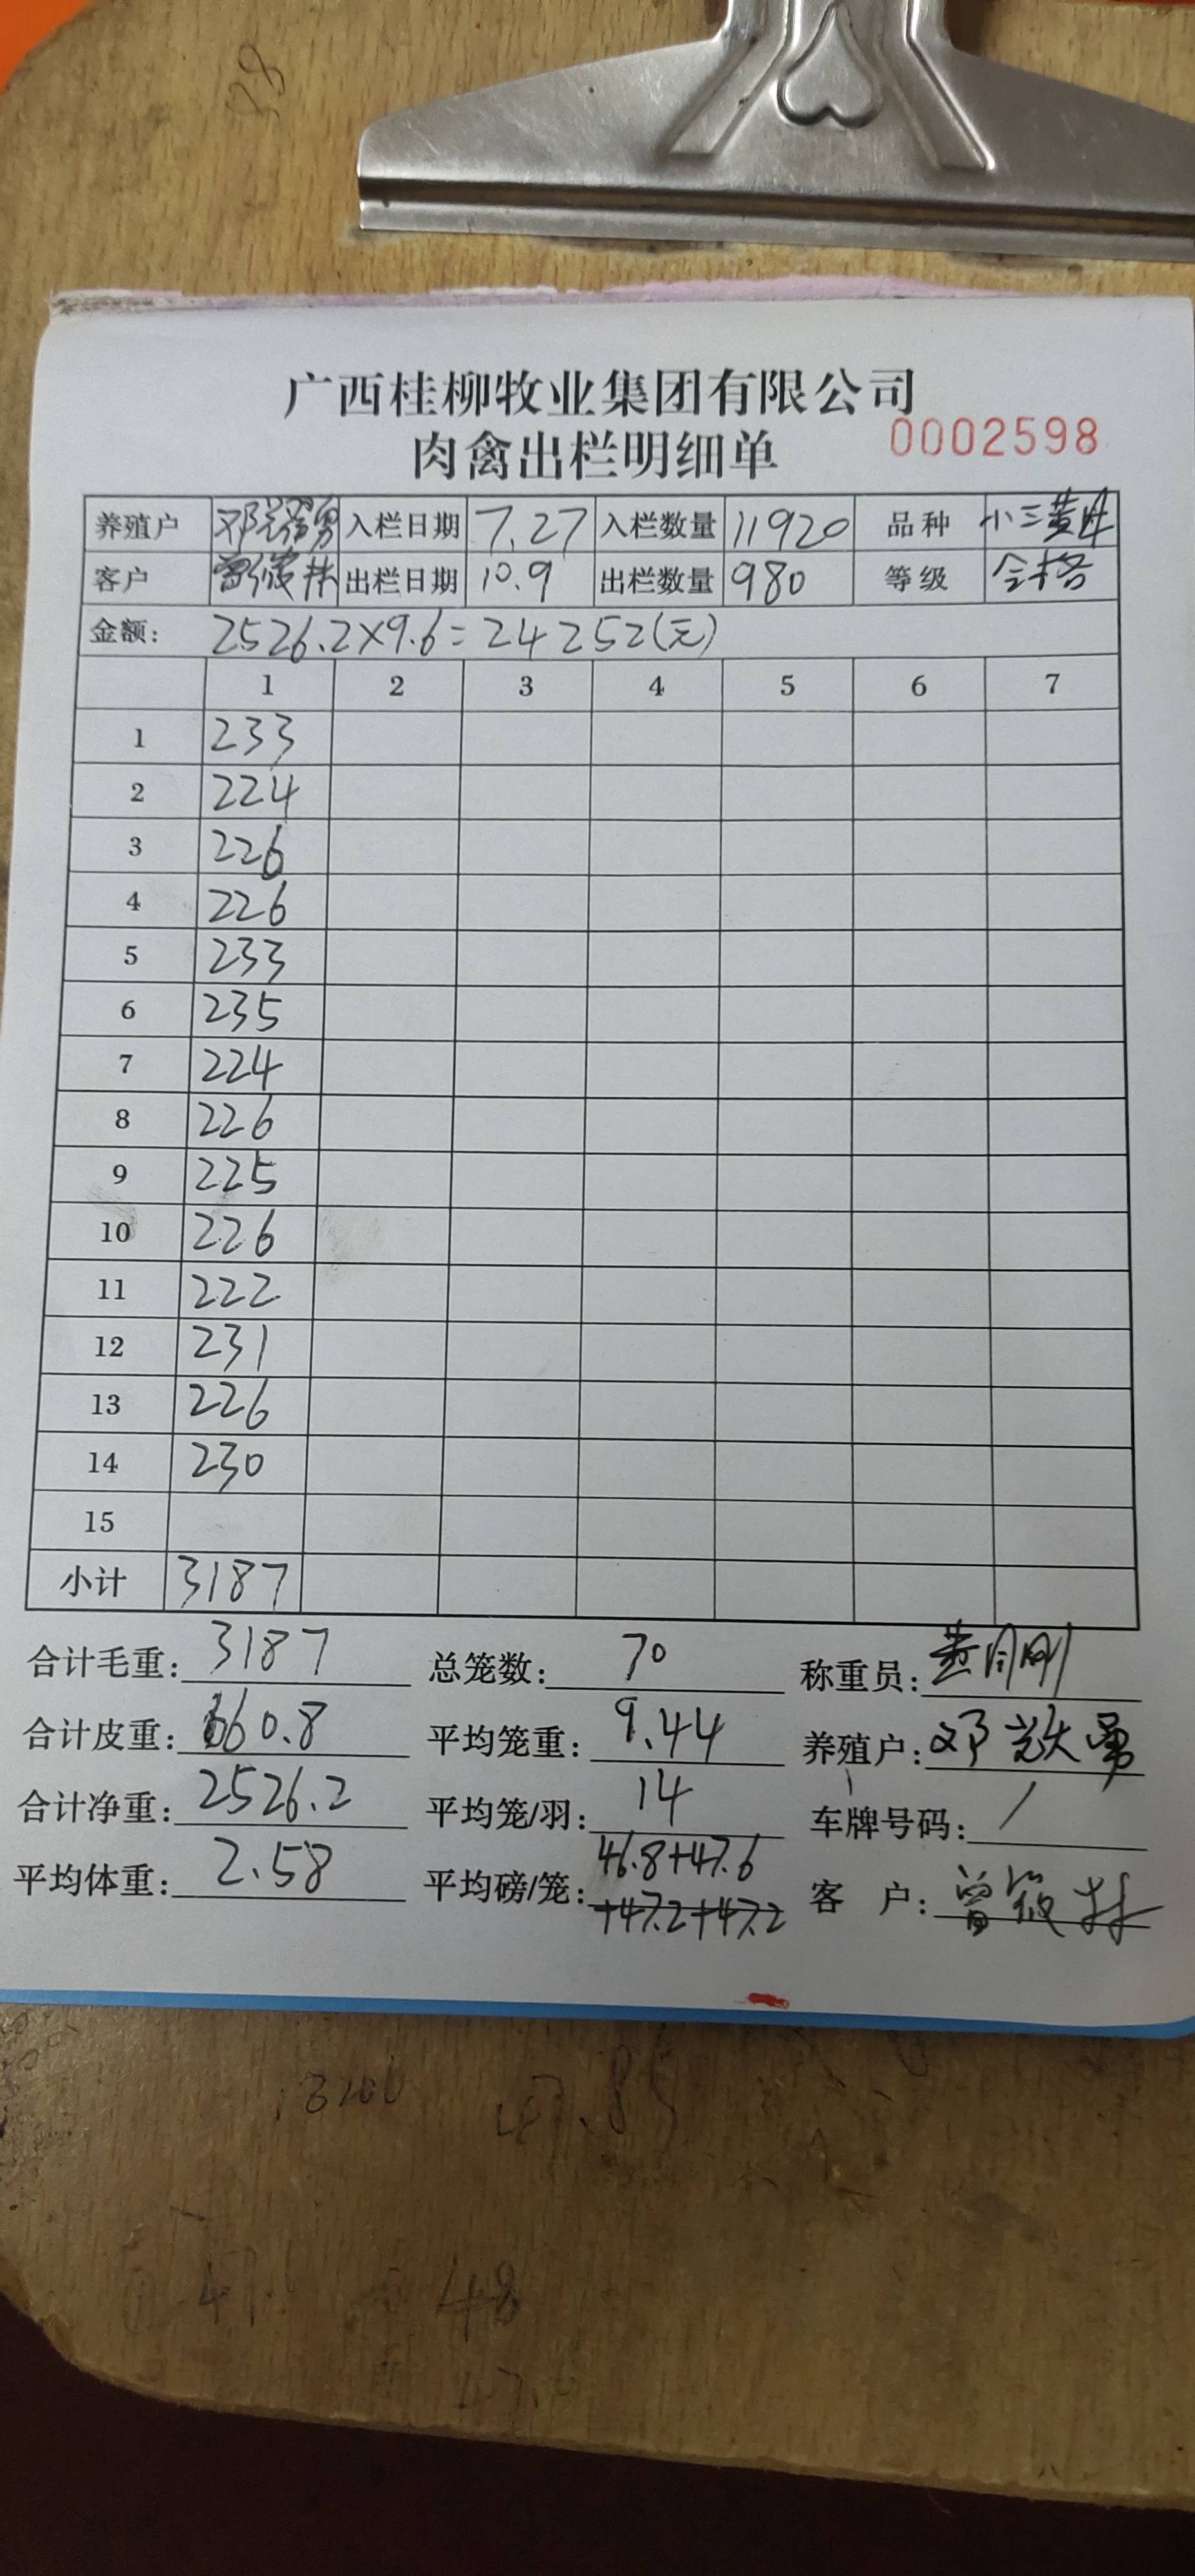 广西桂柳牧业集团有限公司
肉禽出栏明细单 0002598
养殖户 邓 勇 入栏日期 7.27 入栏数量 11920 品种 小三黄
客户 曾 林 出栏日期 10.9 出栏数量 980 等级 合格
金额: 2526.2×9.6=24252(元)
1 2 3 4 5 6 7
1 233
2 224
3 226
4 226
5 233
6 235
7 224
8 226
9 225
10 226
11 222
12 231
13 226
14 230
15
小计 3187
合计毛重: 3187 总笼数: 70 称重员: 黄 刚
合计皮重: 660.8 平均笼重: 9.44 养殖户: 邓 勇
合计净重: 2526.2 平均笼/羽: 14 车牌号码: /
平均体重: 2.58 平均磅/笼: 46.8+47.6
+47.2+47.2 客 户: 曾筱林